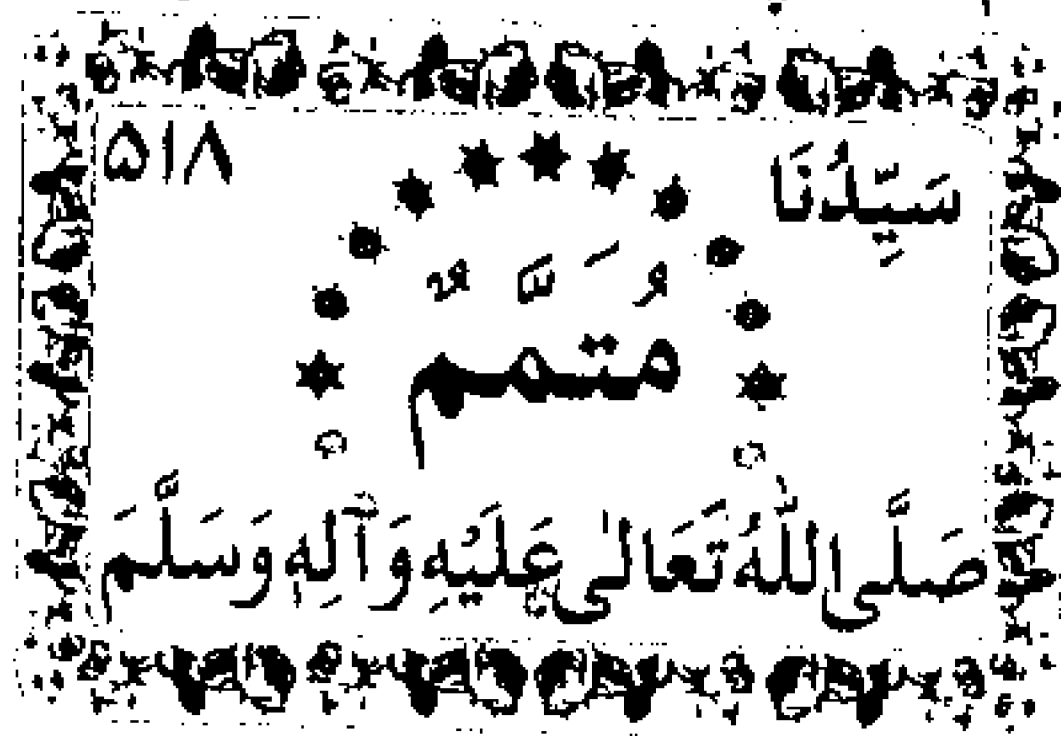 سَيِّدُنَا ۵۱۸
مُتَمَّمٌ
صَلَّى اللّٰهُ تَعَالٰى عَلَيْهِ وَآلِهِ وَسَلَّمَ